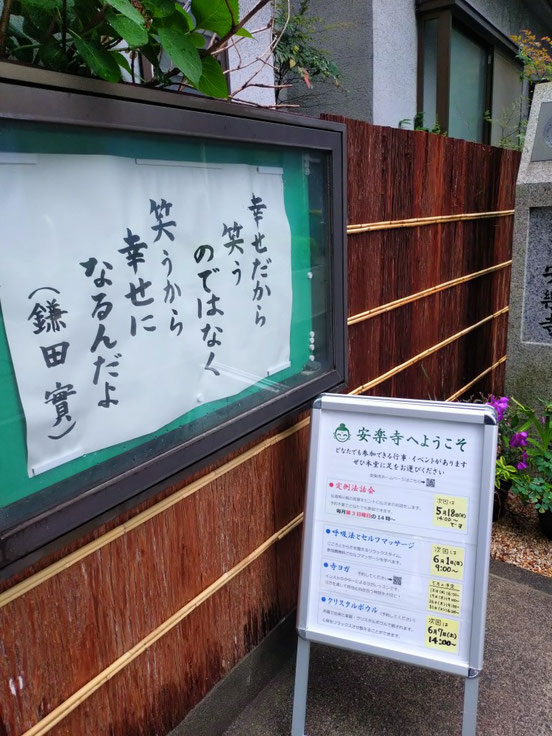 幸せだから
笑う
のではなく
笑うから
幸せに
なるんだよ
(鎌田實)
安楽寺へようこそ
どなたでも参加できる行事・イベントがあります
ぜひ本堂に足をお運びください
●定例法話会
毎月第3日曜日の14時〜
次回は
5月18日(日)
14:00〜
です
●呼吸法とセルフマッサージ
次回は
6月1日(日)
9:00〜
●寺ヨガ
●クリスタルボウル
次回は
6月7日(土)
14:00〜